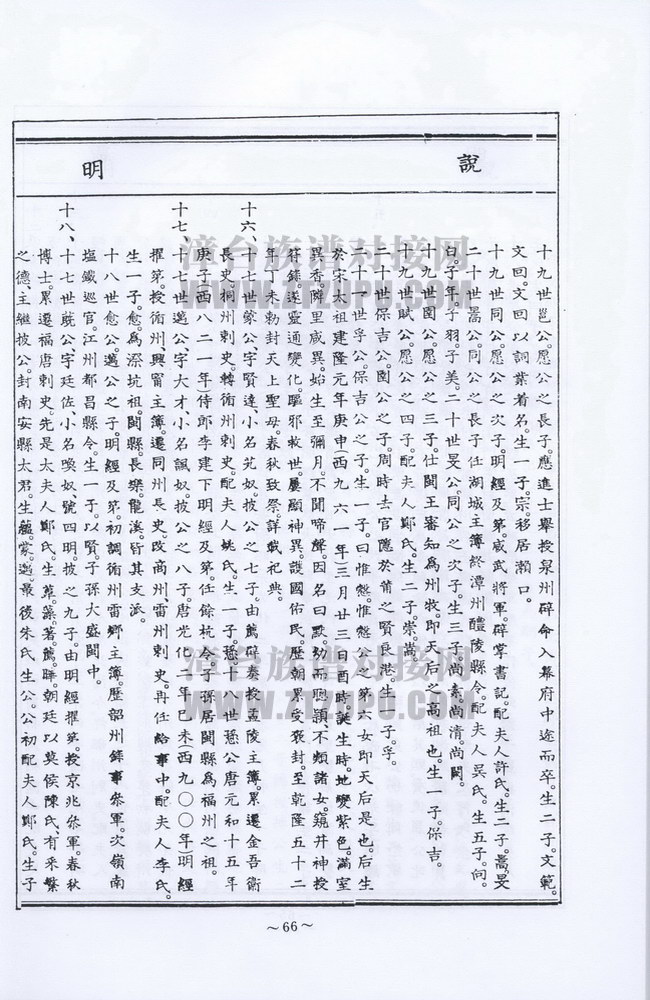 說明
十九世邕公。愿公之長子。應進士舉授泉州辟命入幕府中途而卒。生二子。文範。
文回。文回以詞業着名。生一子。宗。移居瀨口。
十九世同公。愿公之次子。明經及第。威武將軍。辟掌書記。配夫人許氏。生二子。暠。旻
二十世暠公。同公之長子任湖城主簿終潭州醴陵縣令。配夫人吳氏。生五子。向。
白。子年。子羽。子美。二十世旻公。同公之次子。生三子尚素。尚清。尚閩。
十九世圉公。愿公之三子。仕閩王審知為州牧。即天后之高祖也。生一子。保吉。
十九世賦公。愿公之四子。配夫人鄭氏。生二子崇。嵩。
二十世保吉公。圉公之子。周時去官隱於莆之賢良港。生一子。孚。
二十一世孚公。保吉公之子。生一子。曰惟慤。惟慤公之第六女即天后是也。后生
於宋太祖建隆元年庚申(西九六一年)三月廿三日酉時。誕生時。地變紫色。滿室
異香。隣里咸異。始生至彌月。不聞啼聲。因名曰默。幼而聰穎。不類諸女。窺井神授
符籙。遂靈通變化。驅邪救世。屢顯神異。護國佑民。歷朝累受褒封。至乾隆五十二
年丁未勅封天上聖母。春秋致祭。詳載祀典。
十六、十七世蒙公。字賢達。小名茪奴。披公之七子。由薦辟奏授孟陵主簿。累遷金吾衛
長史。桐州刺史。轉循州刺史。配夫人姚氏。生一子。愻十八世愻公唐元和十五年
庚子西八二一年)侍郎李建下明經及第。任餘杭令子孫居閩縣為福州之祖。
十七、十七世邁公。字大才。小名諷奴。披公之八子。唐光化二年己未(西九〇〇年)明經
擢第。授循州、興甯主簿。遷同州長史。改商州、雷州刺史。再任給事中。配夫人李氏。
生一子愈。為深坑祖。閩縣。長樂。龍溪。皆其支派。
十八世愈公。邁公之子。明經及第。初調循州雷鄉主簿。歷韶州錄事參軍。次嶺南
塩鐵巡官。江州都昌縣令。生一子。以賢子孫大盛閩中。
十八、十七世蔇公。字廷佐。小名喚奴、號四明。披之九子。由明經擢第。授京兆參軍。春秋
博士。累遷福唐刺史。先是太夫人鄭氏。生葦。藻。著。薦。曄。朝廷以莫侯陳氏、有采蘩
之德、主繼披公。封南安縣太君。生蘊。蒙。邁。最後朱氏生公。公初配夫人鄭氏。生子
~66~
漳台族谱对接网
WWW.ZTZUPU.COM
漳台族谱对接网
WWW.ZTZUPU.COM